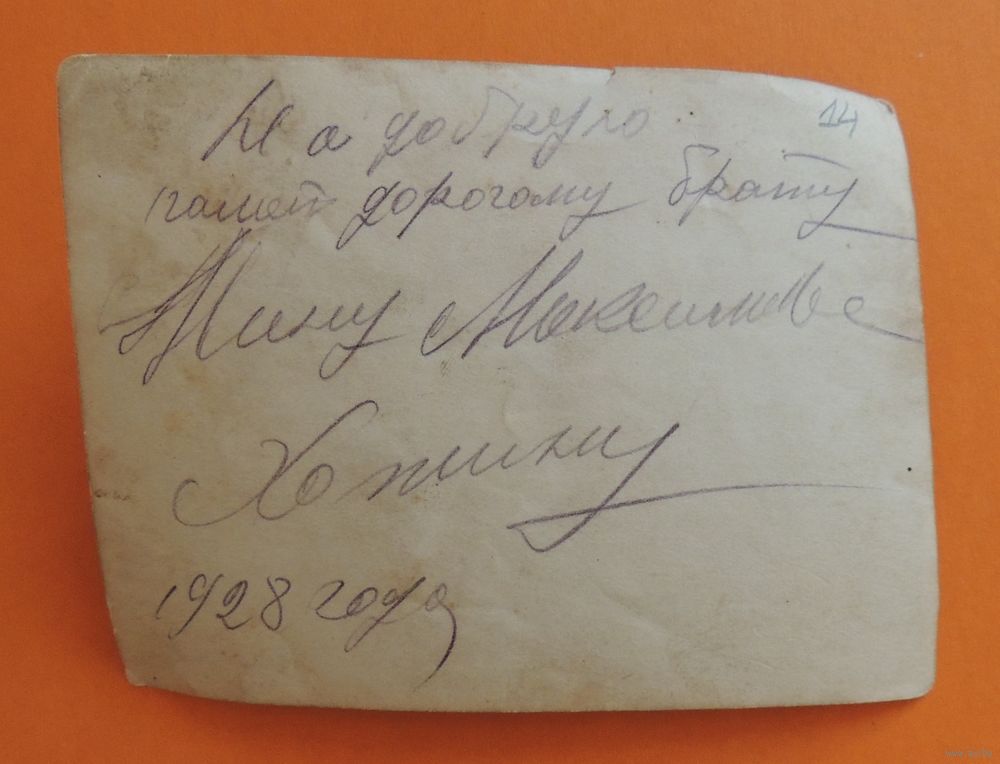 На добрую
14
памет дорогому брату
Мину Максимов
Хотину
1928 года